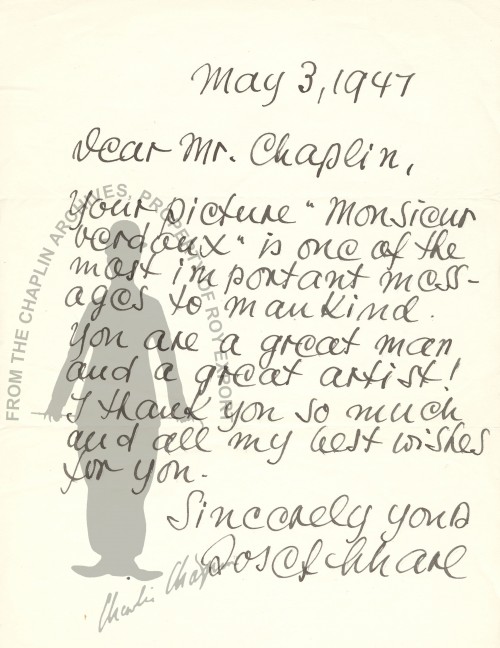 May 3, 1947
Dear Mr. Chaplin,
Your picture "Monsieur
Verdoux" is one of the
most important mess-
ages to mankind.
You are a great man
and a great artist!
I thank you so much
and all my best wishes
for you.
Sincerely yours
Josef
FROM THE CHAPLIN ARCHIVES, PROPERTY OF ROY EXPORT
Charlie Chaplin